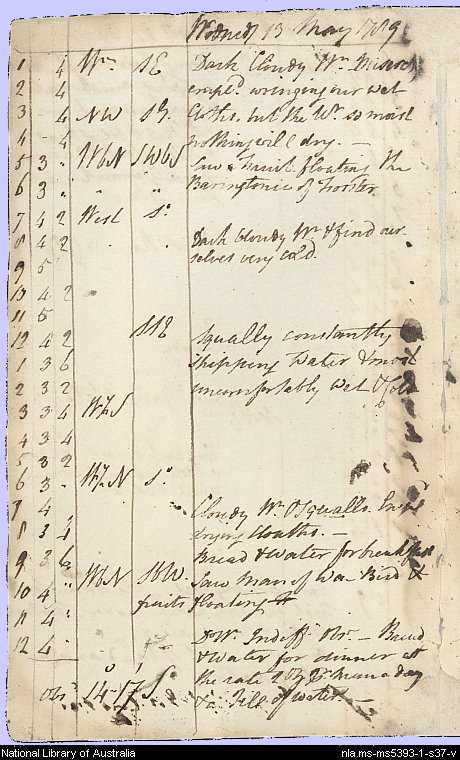 Wednesdy 13 May 1789
1 4 Wn SE Dark Cloudy Wr
2 4 wringing our wet
3 4 NW Sy. Cloths, but the Wr. so moist
4 4 nothing will dry. —
5 3 " WbN SWbS Saw a Fruit floating the
6 3 " " " Baringtonia of Forster
7 4 2 West So
8 4 2 " Dark Cloudy Wr & find our
9 5 selves very cold.
10 4 2
11 5
12 4 2 SSE Squally constantly
1 3 6 shipping Water & most
2 3 2 uncomfortably wet & cold
3 3 4 W½S
4 3 4
5 3 2
6 3 " W½N So
7 4 Cloudy Wr & Squalls.
8 3 4 drying Cloaths. —
9 3 6 Bread & Water for breakfast
10 4 " WbN SbW Saw Man of War Bird &
11 4 " fruits floating
12 4 " Dо Wr Indiff Obs. — Bread
& Water for dinner at
the rate
obs 14°17' S. & a Gill of water. —
National Library of Australia nla.ms-ms5393-1-s37-v